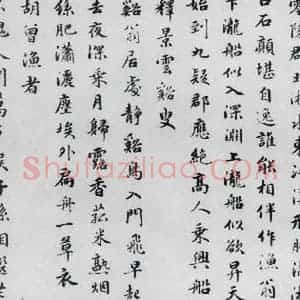 陵郡北湘水東浯溪形勝
口石顛堪自逸誰能相伴作漁翁
下瀧船似入深淵上瀧船似欲昇天
始到九疑郡應絕高人乘興船
釋景雲谿叟
谿翁居處靜谿鳥入門飛早起
去夜深乘月歸露香菰米熟烟
絲肥瀟灑塵埃外扁舟一草衣
胡曾漁者
Shufaziliao.COM